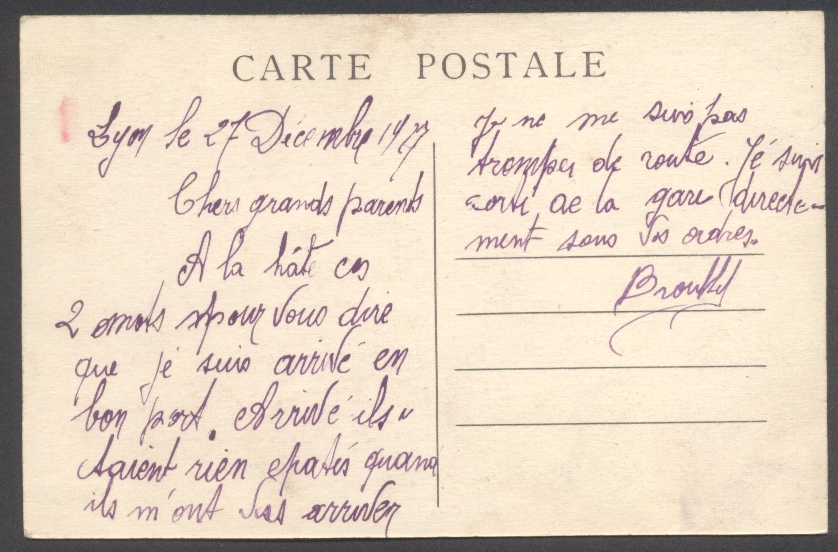 CARTE POSTALE
Lyon le 27 Décembre
Chers grands parents
A la hâte ces
2 mots pour vous dire
que je suis arrivé en
bon port. Arrivé ils
étaient rien epatés quand
ils m'ont vus arriver
Je ne me suis pas
tromper de route. Je suis
sorti de la gare directe-
ment sous vos ordres.